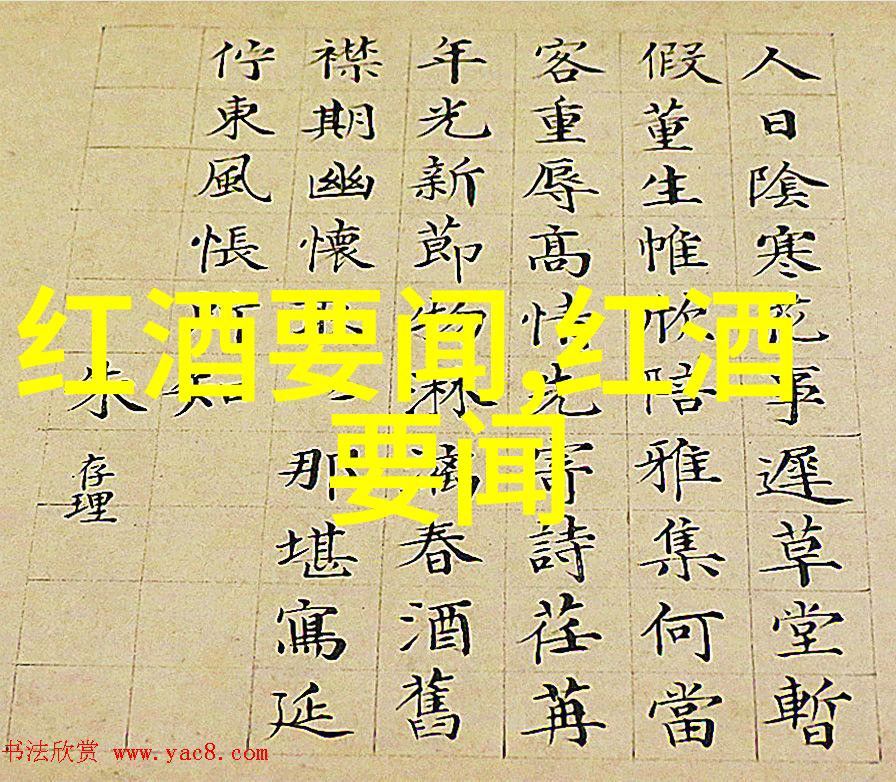 人日陰寒花事遲草堂暫
假董生帷欣陪雅集何當
客重辱高情先寄詩荏苒
年光新節物淋漓春酒舊
襟期幽懷那堪寫延
佇東風悵知
朱存理
红酒要闻,红酒
要闻
书法欣赏 www.yac8.com